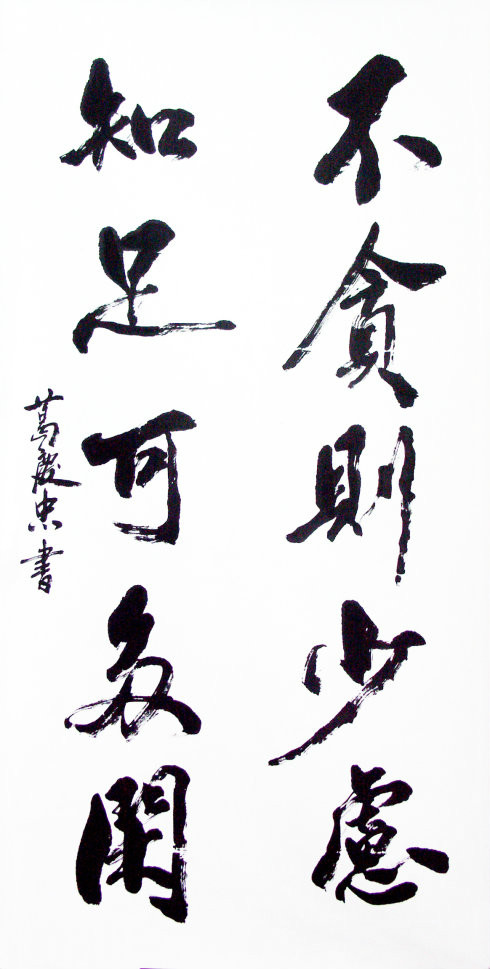 不貪則少慮
知足可多閑
葛慶忠書